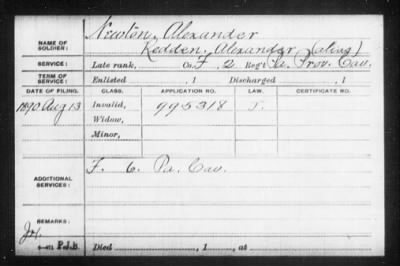 NAME OF SOLDIER: Newton, Alexander
Redden, Alexander (alias)
SERVICE: Late rank, Co. F, 2 Reg't Pa. Prov. Cav.
TERM OF SERVICE: Enlisted , 1 Discharged , 1
DATE OF FILING. CLASS. APPLICATION NO. LAW. CERTIFICATE NO.
1890 Aug 13 Invalid, 995318
Widow,
Minor,
ADDITIONAL SERVICES: F. 6. Pa. Cav.
REMARKS:
P.J.B. Died , 1 , at